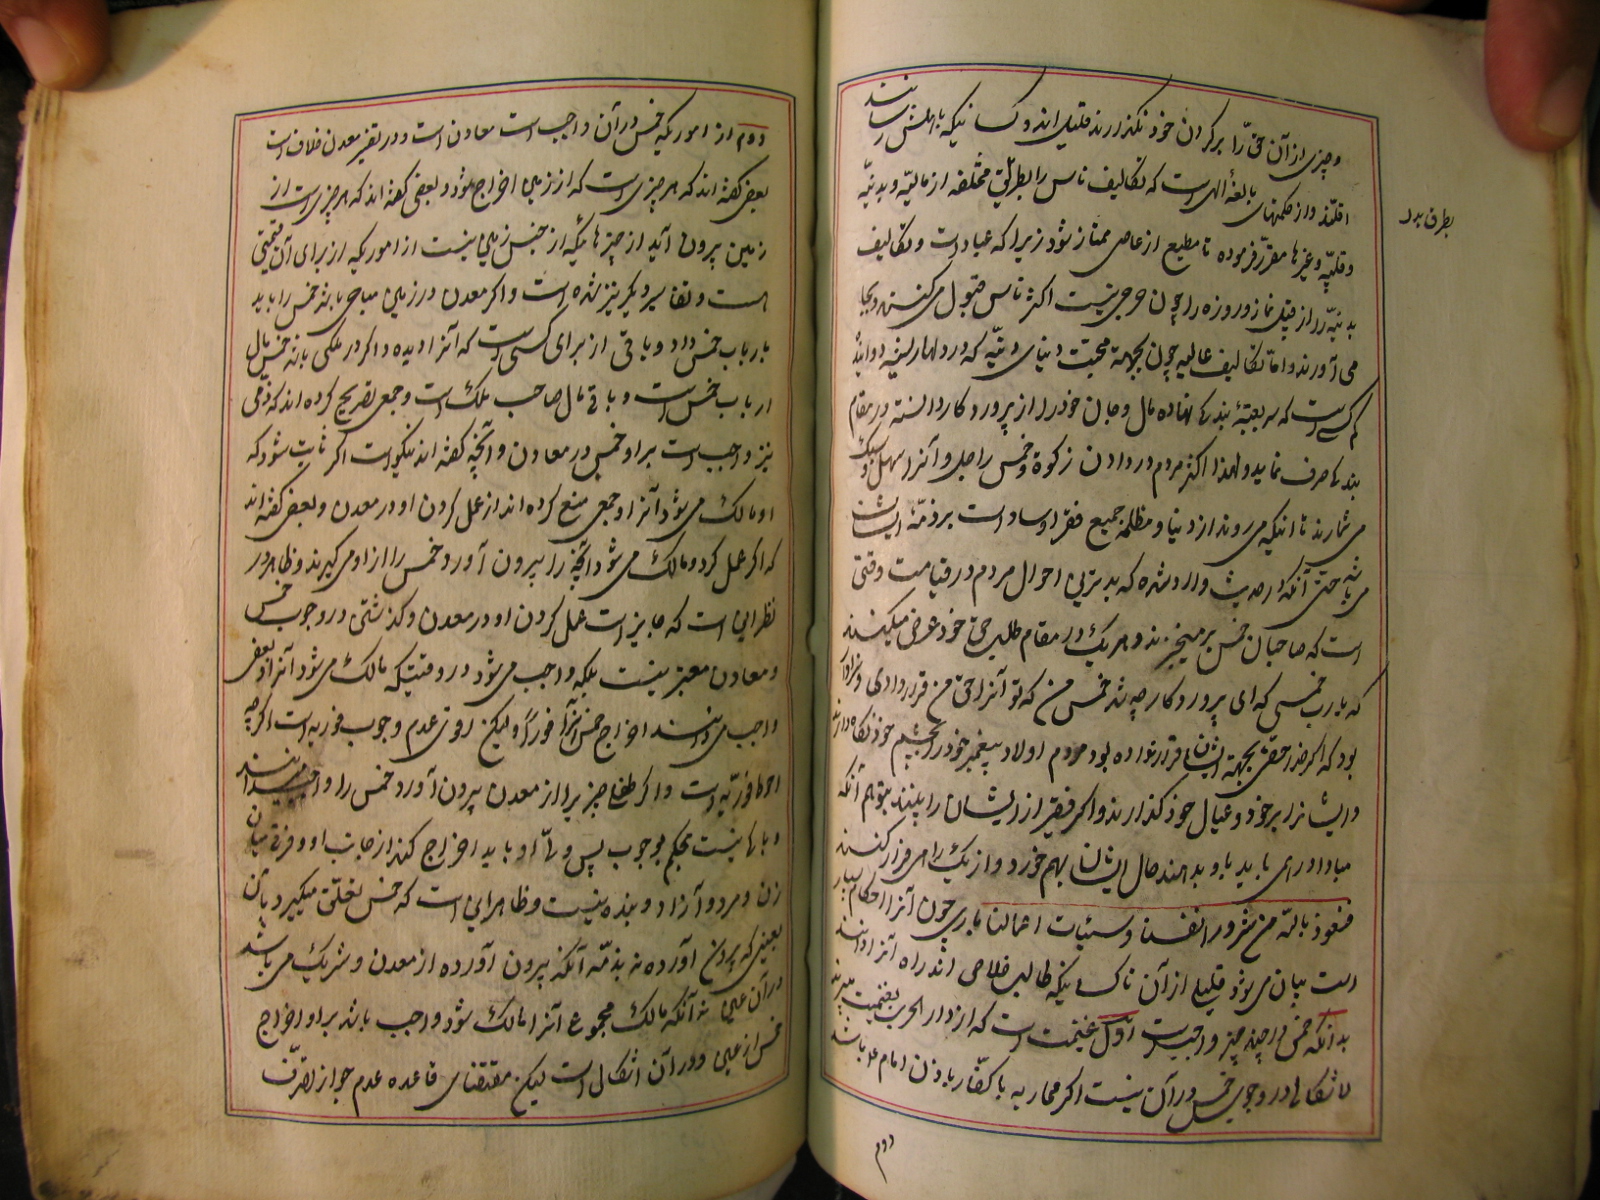 وچیزی از آن حق را بر کردن خود نکذارند قلیل اند و کسانیکه باهلش رسانند
اقلند و از حکمتهای بالغهٔ الهی است که تکالیف ناس را بطرق مختلفه از مالیّه و بدنیّه
بطرق
و قلبیّه و غیرها مقرّر فرموده تا مطیع از عاصی ممتاز شود زیرا که عبادات و تکالیف
بدنیّه را از قبیل نماز و روزه را چون خرجی نیست اکثر ناس قبول می کنند و بجا
می آورند و امّا تکالیف مالیه چون بجهة محبّت دنیای دنیّه که در دلها ریشه دوانیده
کم کسی است که سر بعتبهٔ بندکی نهاده مال و جان خود را از پروردکار دانسته در مقام
بندکی صرف نماید و لهذا اکثر مردم در دادن زکوة و خمس را و آنرا سهل و سبک
می شمارند تا اینکه می روند از دنیا و مظلمهٔ جمیع فقرا و سادات بر ذمّهٔ ایشان
می باشد حتی آنکه در حدیث وارد شده که بدترین احوال مردم در قیامت وقتی
است که صاحبان خمس برمیخیزند و هر یک در مقام طلب حق خود عرض میکنند
که یا رب خمسی که ای پروردکار چه شد خمس من که تو آنرا حق من قرار دادی و سزاوار
بود که اکر خدا حقی بجهة ایشان قرار نداده بود مردم اولاد پیغمبر خود را بچشم خود نکاه دارند
و ایشانرا بر خود و عیال خود کذارند و اکر فقیر از ایشان را بینند بتوهم آنکه
مبادا وای باید باو بدهند حال ایشان بهم خورد و از یک را می فرار کنند
فنعوذ بالله من شرور انفسنا و سیئات اعمالنا باری چون آنرا احکام بسیار
است بیان می شود قلیلی از آن تا کسانیکه طالب خلاصی اند راه آنرا دانند
بدانکه خمس در چند چیز واجبست اوّل غنیمت است که از دار الحرب بغنیمت میبرند
و اشکالی در وجوب خمس در آن نیست اکر محاربه با کفّار باذن امام ع باشد
دوم
دوم از اموریکه خمس در آن واجب است معادن است و در تفسیر معدن خلاف است
بعضی کفته اند که هر چیزی است که از زمین اخراج شود و بعضی کفته اند که هر چیزی است از
زمین بیرون آید از چیزهائیکه از جنس زمین نیست از اموریکه از برای آن قیمتی
است و تفاسیر دیکر نیز شده است و اکر معدن در زمین مباحی باشد خمس را باید
بارباب خمس داد و باقی از برای کسی است که آنرا دیده و اکر در ملکی باشد خمس مال
ارباب خمس است و باقی مال صاحب ملک است و جمعی تصریح کرده اند که ذمّی
نیز واجب است بر او خمس در معادن و آنچه کفته اند نیکو است اکر ثابت شود که
او مالک می شود آنرا و جمعی منع کرده اند از عمل کردن او در معدن و بعضی کفته اند
که اکر عمل کرد و مالک می شود آنچه را بیرون آورد و خمس را از او می کیرند و ظاهر در
نظر این است که جایز است عمل کردن او در معدن و کذشتی در وجوب خمس
و معادن معتبر نیست بلکه واجب می شود در وقتیکه مالک می شود آنرا و بعضی
واجب می دانند اخراج خمس آنرا فورًا و لیکن اقوی عدم وجوب فوریه است اکر چه
احوط فوریّه است و اکر طفلی چیزیرا از معدن بیرون آورد خمس را واجب میدانند
و بنا نیست بحکم بوجوب پس ولیّ او باید اخراج کند از جانب او و فرقی میان
زن و مرد و آزاد و بنده نیست و ظاهر این است که خمس تعلّق میکیرد بآن
بعینی که بیرون آورده نه بذمّه آنکه بیرون آورده از معدن و شریک می باشد
در آن عین نه آنکه مالک مجموع آنرا مالک شود و واجب باشد بر او اخراج
خمس از عین و در آن اشکال است لیکن مقتضای قاعده عدم جواز تصرّف